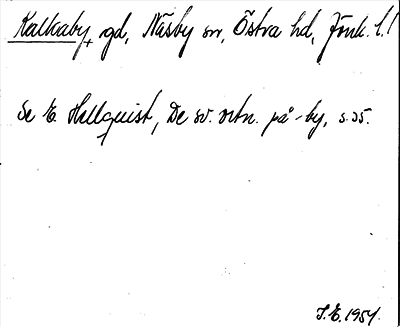 Kalkaby, gd, Näsby sn, Östra hd, Jönk. l.!
Se E. Hellquist, De sv. ortn. på -by, s. 35.
J.E. 1954.